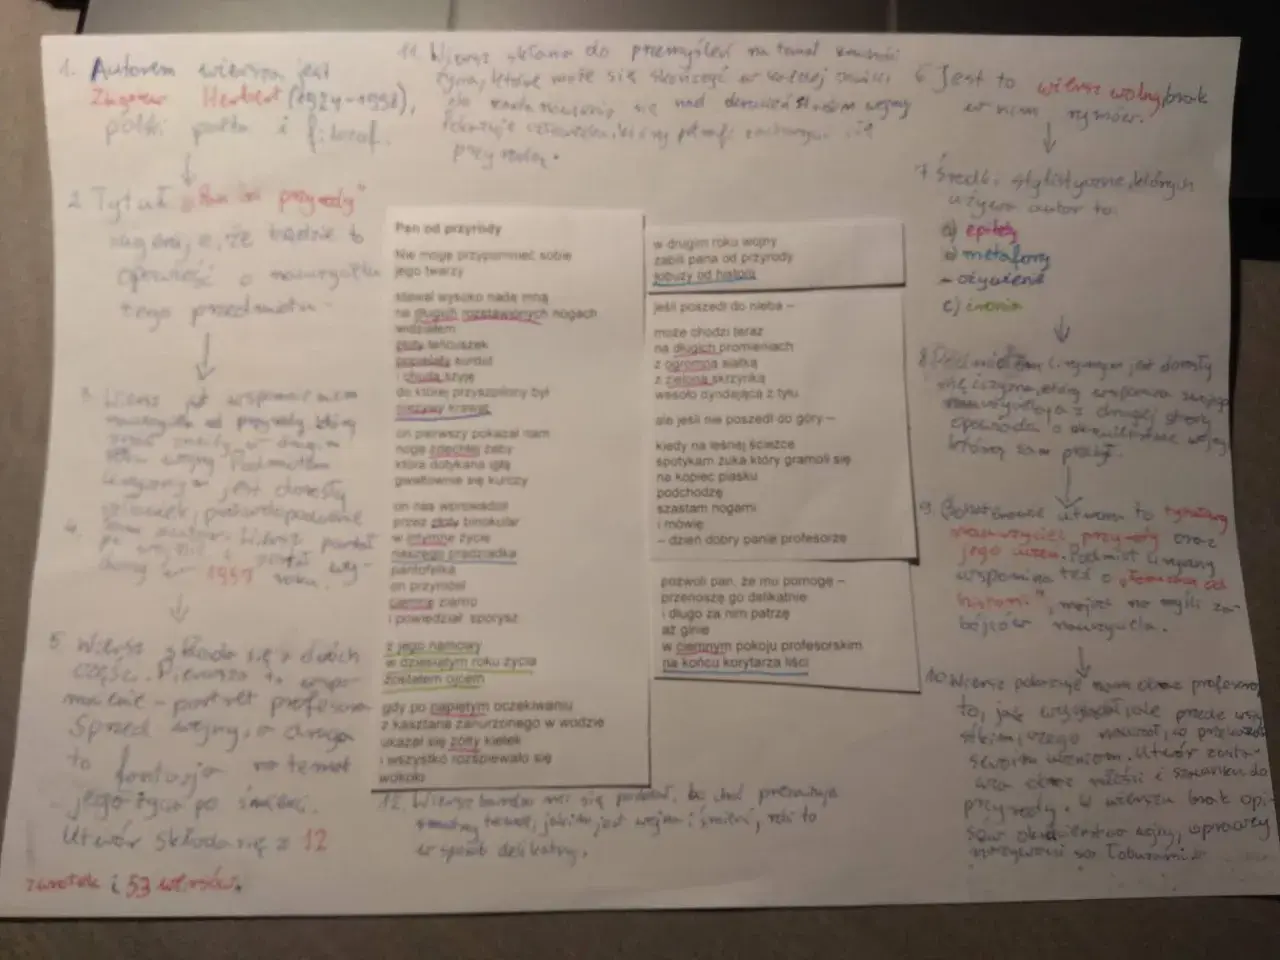 1. Autorem wiersza jest
Zbigniew Herbert (1924-1998),
polski poeta i filozof.
2. Tytuł "Pan od przyrody"
że będzie to
opowieść o nauczycielu
tego przedmiotu.
3. Wiersz jest wspomnieniem
nauczyciela od przyrody, który
w drugim
roku wojny. Podmiotem
lirycznym jest dorosły
człowiek, prawdopodobnie
4. Wiersz powstał
po wojnie i został wy-
dany w 1957 roku.
5. Wiersz składa się z dwóch
części. Pierwsza to wspo-
mnienie - portret profesora
sprzed wojny, a druga
to fantazja na temat
jego życia po śmierci.
Utwór składa się z 12
zwrotek i 53 wersów.
11. Wiersz skłania do przemyśleń na temat
życia, które może się skończyć w każdej chwili
do zastanowienia się nad okrucieństwem wojny
człowieka, który potrafi zachwycić się
przyrodą.
Pan od przyrody
Nie mogę przypomnieć sobie
jego twarzy
stawał wysoko nade mną
na długich rozstawionych nogach
widziałem
złoty łańcuszek
popielaty surdut
i chudą szyję
do której przyszpilony był
nieżywy krawat
on pierwszy pokazał nam
nogę zdechłej żaby
która dotykana igłą
gwałtownie się kurczy
on nas wprowadził
przez złoty binokular
w intymne życie
naszego pradziadka
pantofelka
on przyniósł
ciemne ziarno
i powiedział: sporysz
z jego namowy
w dziesiątym roku życia
zostałem ojcem
gdy po napiętym oczekiwaniu
z kasztana zanurzonego w wodzie
ukazał się żółty kiełek
i wszystko rozśpiewało się
wokoło
w drugim roku wojny
zabili pana od przyrody
łobuzy od historii
jeśli poszedł do nieba –
może chodzi teraz
na długich promieniach
z ogromną siatką
z zieloną skrzynką
wesoło dyndającą z tyłu
ale jeśli nie poszedł do góry –
kiedy na leśnej ścieżce
spotykam żuka który gramoli się
na kopiec piasku
podchodzę
szastam nogami
i mówię
– dzień dobry panie profesorze
pozwoli pan, że mu pomogę –
przenoszę go delikatnie
i długo za nim patrzę
aż ginie
w ciemnym pokoju profesorskim
na końcu korytarza liści
12. Wiersz bardzo mi się podobał, bo choć prezentuje
smutny temat, jakim jest wojna i śmierć, robi to
w sposób delikatny.
6. Jest to wiersz wolny, brak
w nim rymów.
7. Środki stylistyczne, których
używa autor to:
a) epitety
b) metafory
- ożywienie
c) ironia
8. Podmiotem lirycznym jest dorosły
mężczyzna, który wspomina swojego
nauczyciela z drugiej strony
opowiada o okrucieństwie wojny,
którą sam przeżył.
9. Bohaterowie utworu to tytułowy
nauczyciel przyrody oraz
jego uczeń. Podmiot liryczny
wspomina też o "łobuzach od
historii", mając na myśli za-
bójców nauczyciela.
10. Wiersz pokazuje nam obraz profesora,
to, jak wyglądał, ale przede wszy-
stkim, czego nauczał, co przekazał
swoim uczniom. Utwór zawie-
ra obraz miłości i szacunku do
przyrody. W wierszu brak opi-
sów okrucieństwa wojny, oprawcy
nazywani są łobuzami.